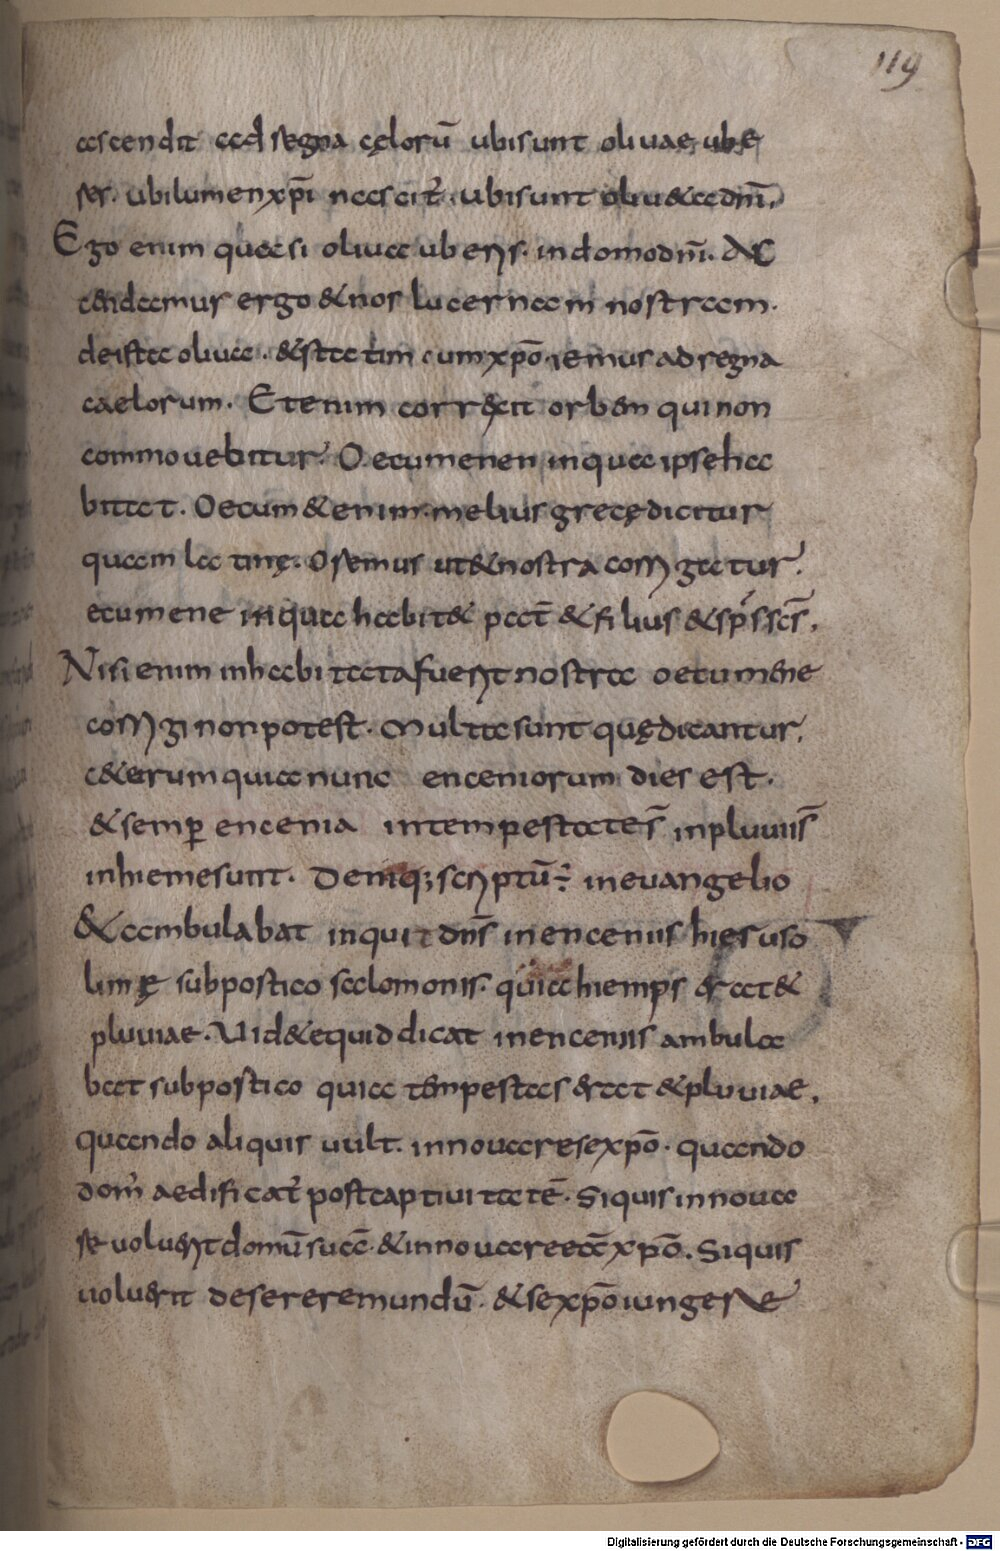 119
ascendit ad regna cęlorū ubi sunt olivae ube
res. ubi lumen xp̄i nascit̄. ubi sunt oliu&a dn̄i.
Ego enim quasi oliva uberis. in domo dn̄i. Ac
cendamus ergo & nos lucernam nostram.
de ista oliva. & statim cum xp̄o iemus ad regna
caelorum. Etenim correxit orbem qui non
commovebitur. Oecumenen in qua ipse ha
bitat. Oecum&en enim melius grecę dicitur
quam latinę. Oremus ut & nostra corrigatur.
ecumene in qua habit& pat̄ & filius & sp̄s sc̄s.
Nisi enim inhabitata fuerit nostra oecumene
corrigi non potest. Multa sunt quę dicantur.
c&erum quia nunc enceniorum dies est.
& semp encenia in tempestates̄ in pluviis̄
in hieme sunt. Deniq; scriptū ÷ in evangelio
& ambulabat inquit dn̄s in enceniis hieruso
limę sub postico salomonis. quia hiemps erat &
pluviae. Vid& equid dicat in enceniis ambula
bat sub postico quia tempestas erat & pluviae.
quando aliquis vult. innovare se xp̄o. quando
dom̄ aedificat̄ post captivitatē. Si quis innova
re voluerit domū suā. & innovare eā xp̄o. Si quis
voluerit deserere mundū. & se xp̄o iungere
Digitalisierung gefördert durch die Deutsche Forschungsgemeinschaft - DFG